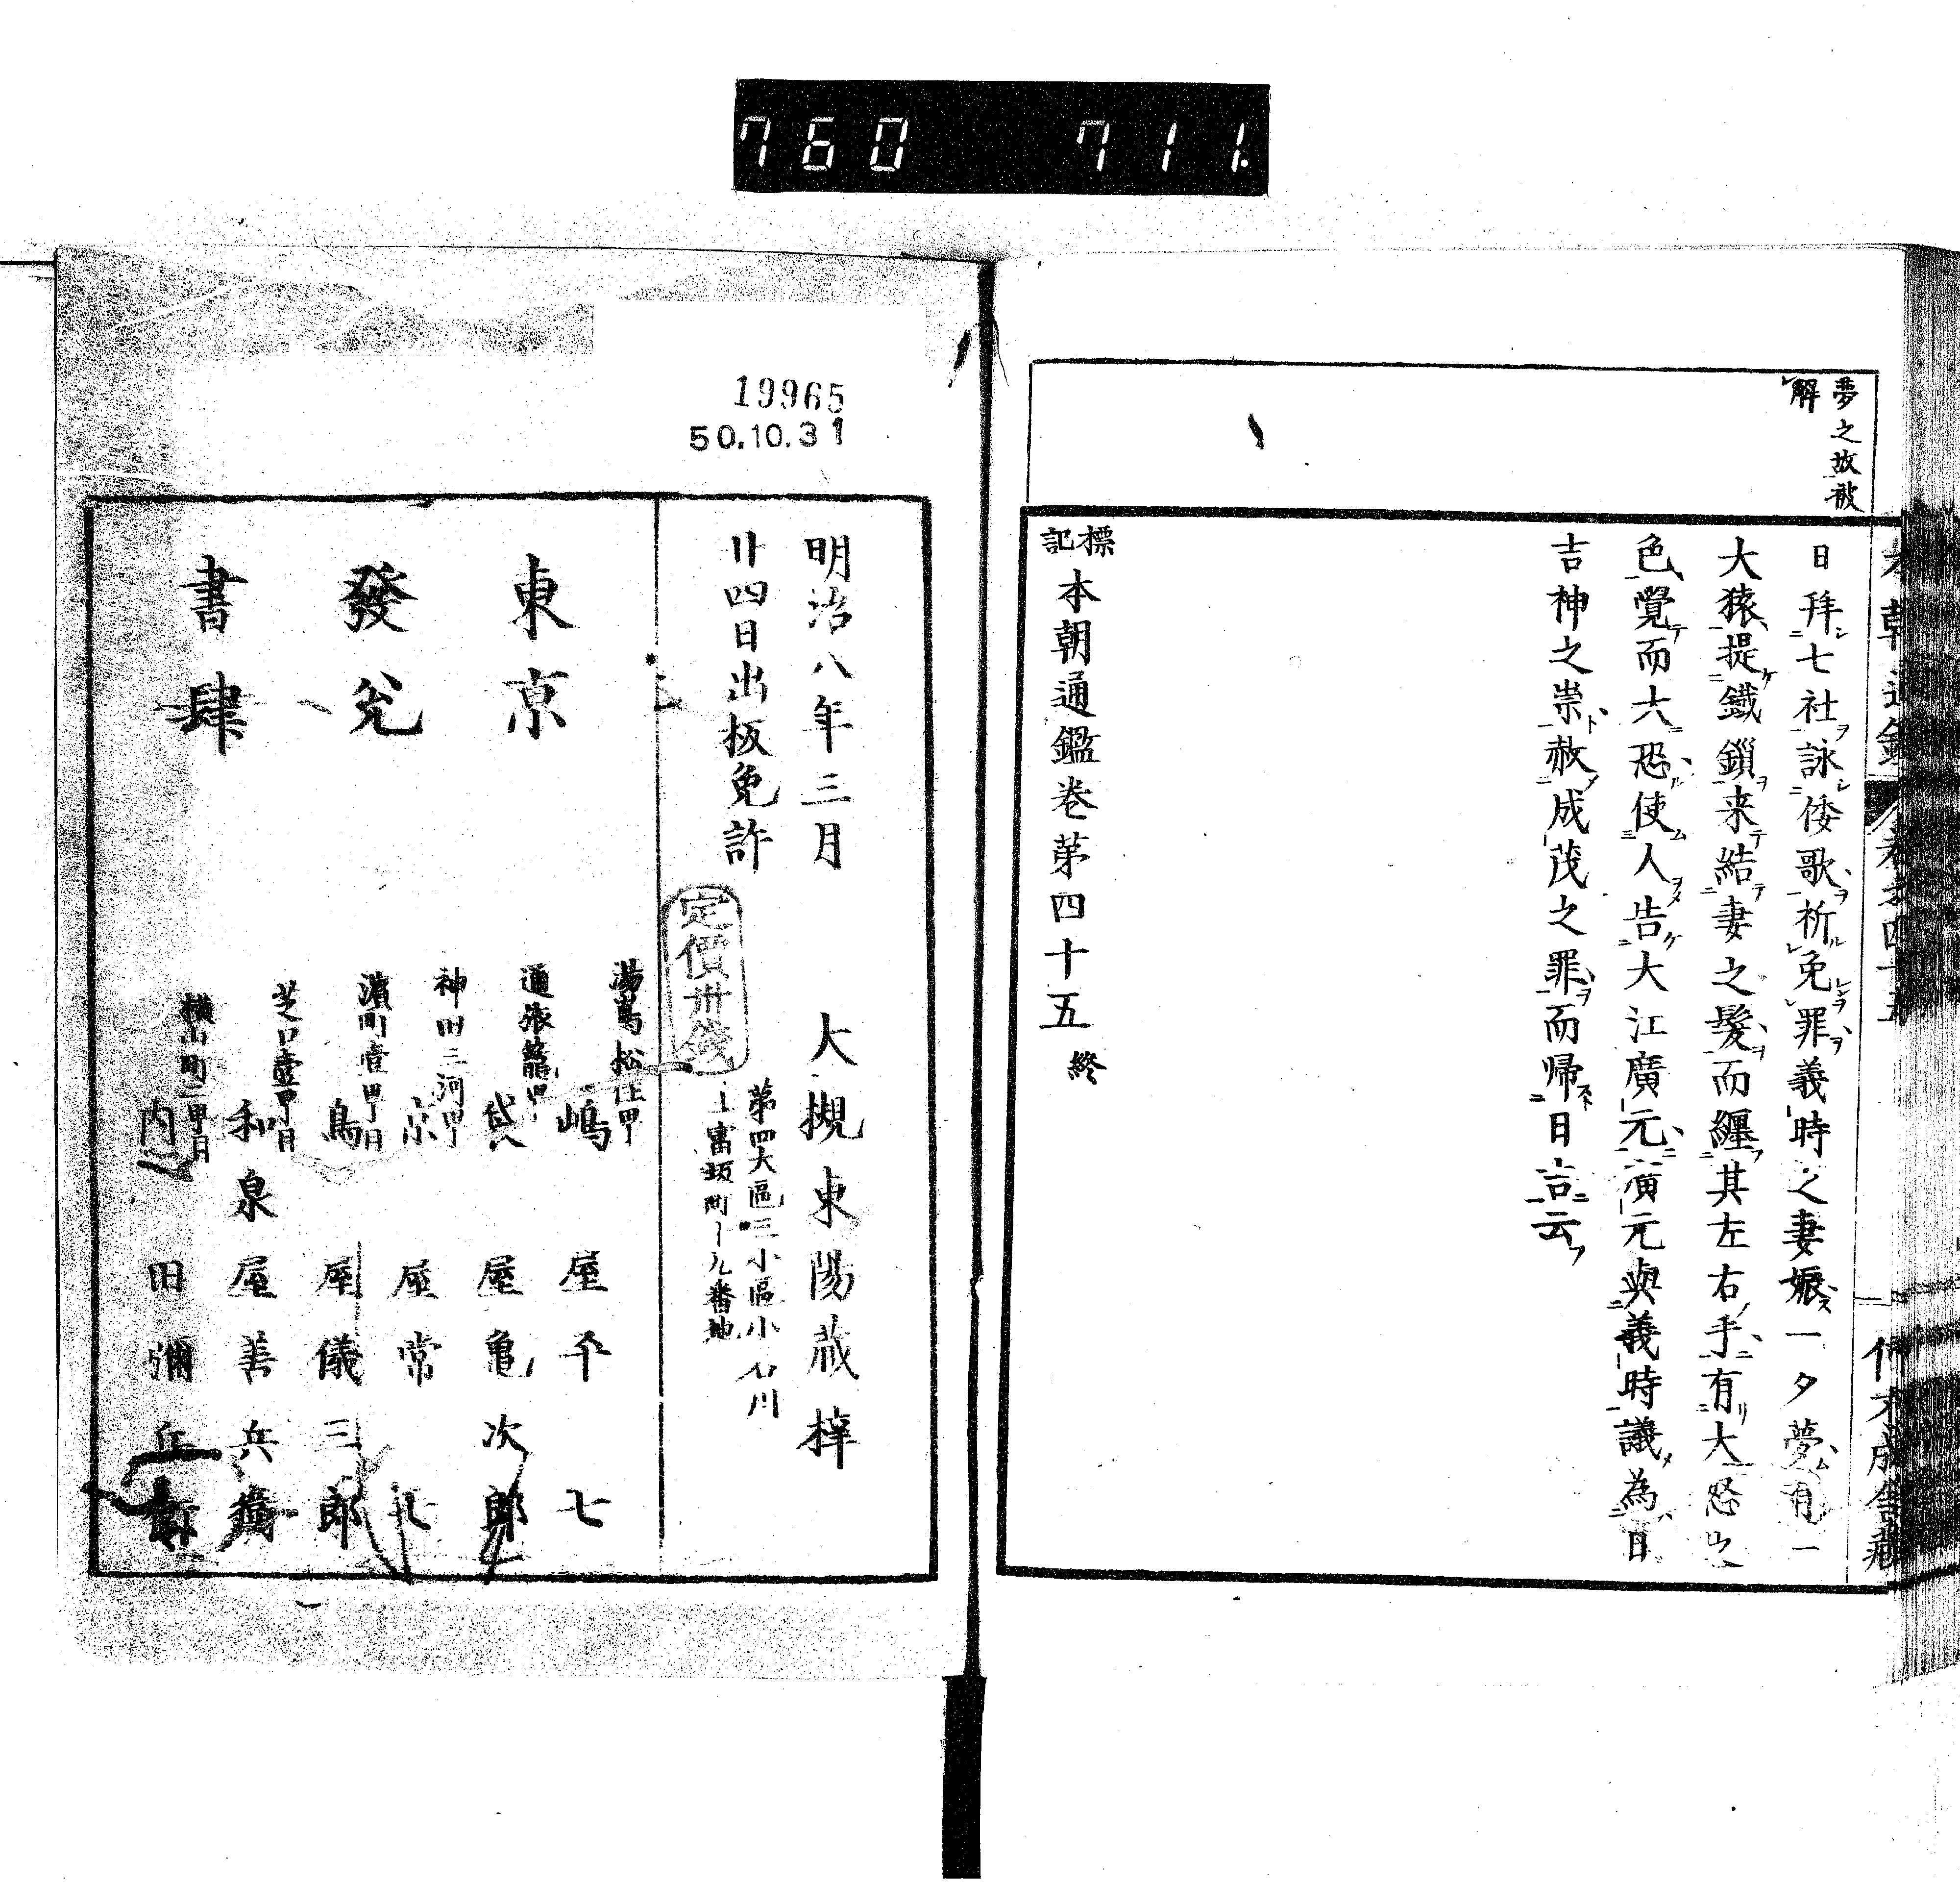 760 711.
夢之故被
解
日拜七社詠倭歌祈免罪義時之妻娠一夕夢有一
大猿提鐵鎖来結妻之髮而纏其左右手有大怒之
色覺而大恐使人告大江廣元廣元與義時議為日
吉神之祟赦成茂之罪而帰日吉云
標記 本朝通鑑卷第四十五 終
19965
50.10.31
明治八年三月
廿四日出板免許
大槻東陽藏梓
第四大區三小區小石川
上富坂町十九番地
定價卅錢
東京
發兌
書肆
嶋屋平七
屋亀次郎
京屋常七
鳥屋儀三郎
芝口壹丁目
和泉屋善兵衛
横山町三丁目
内田彌兵衛